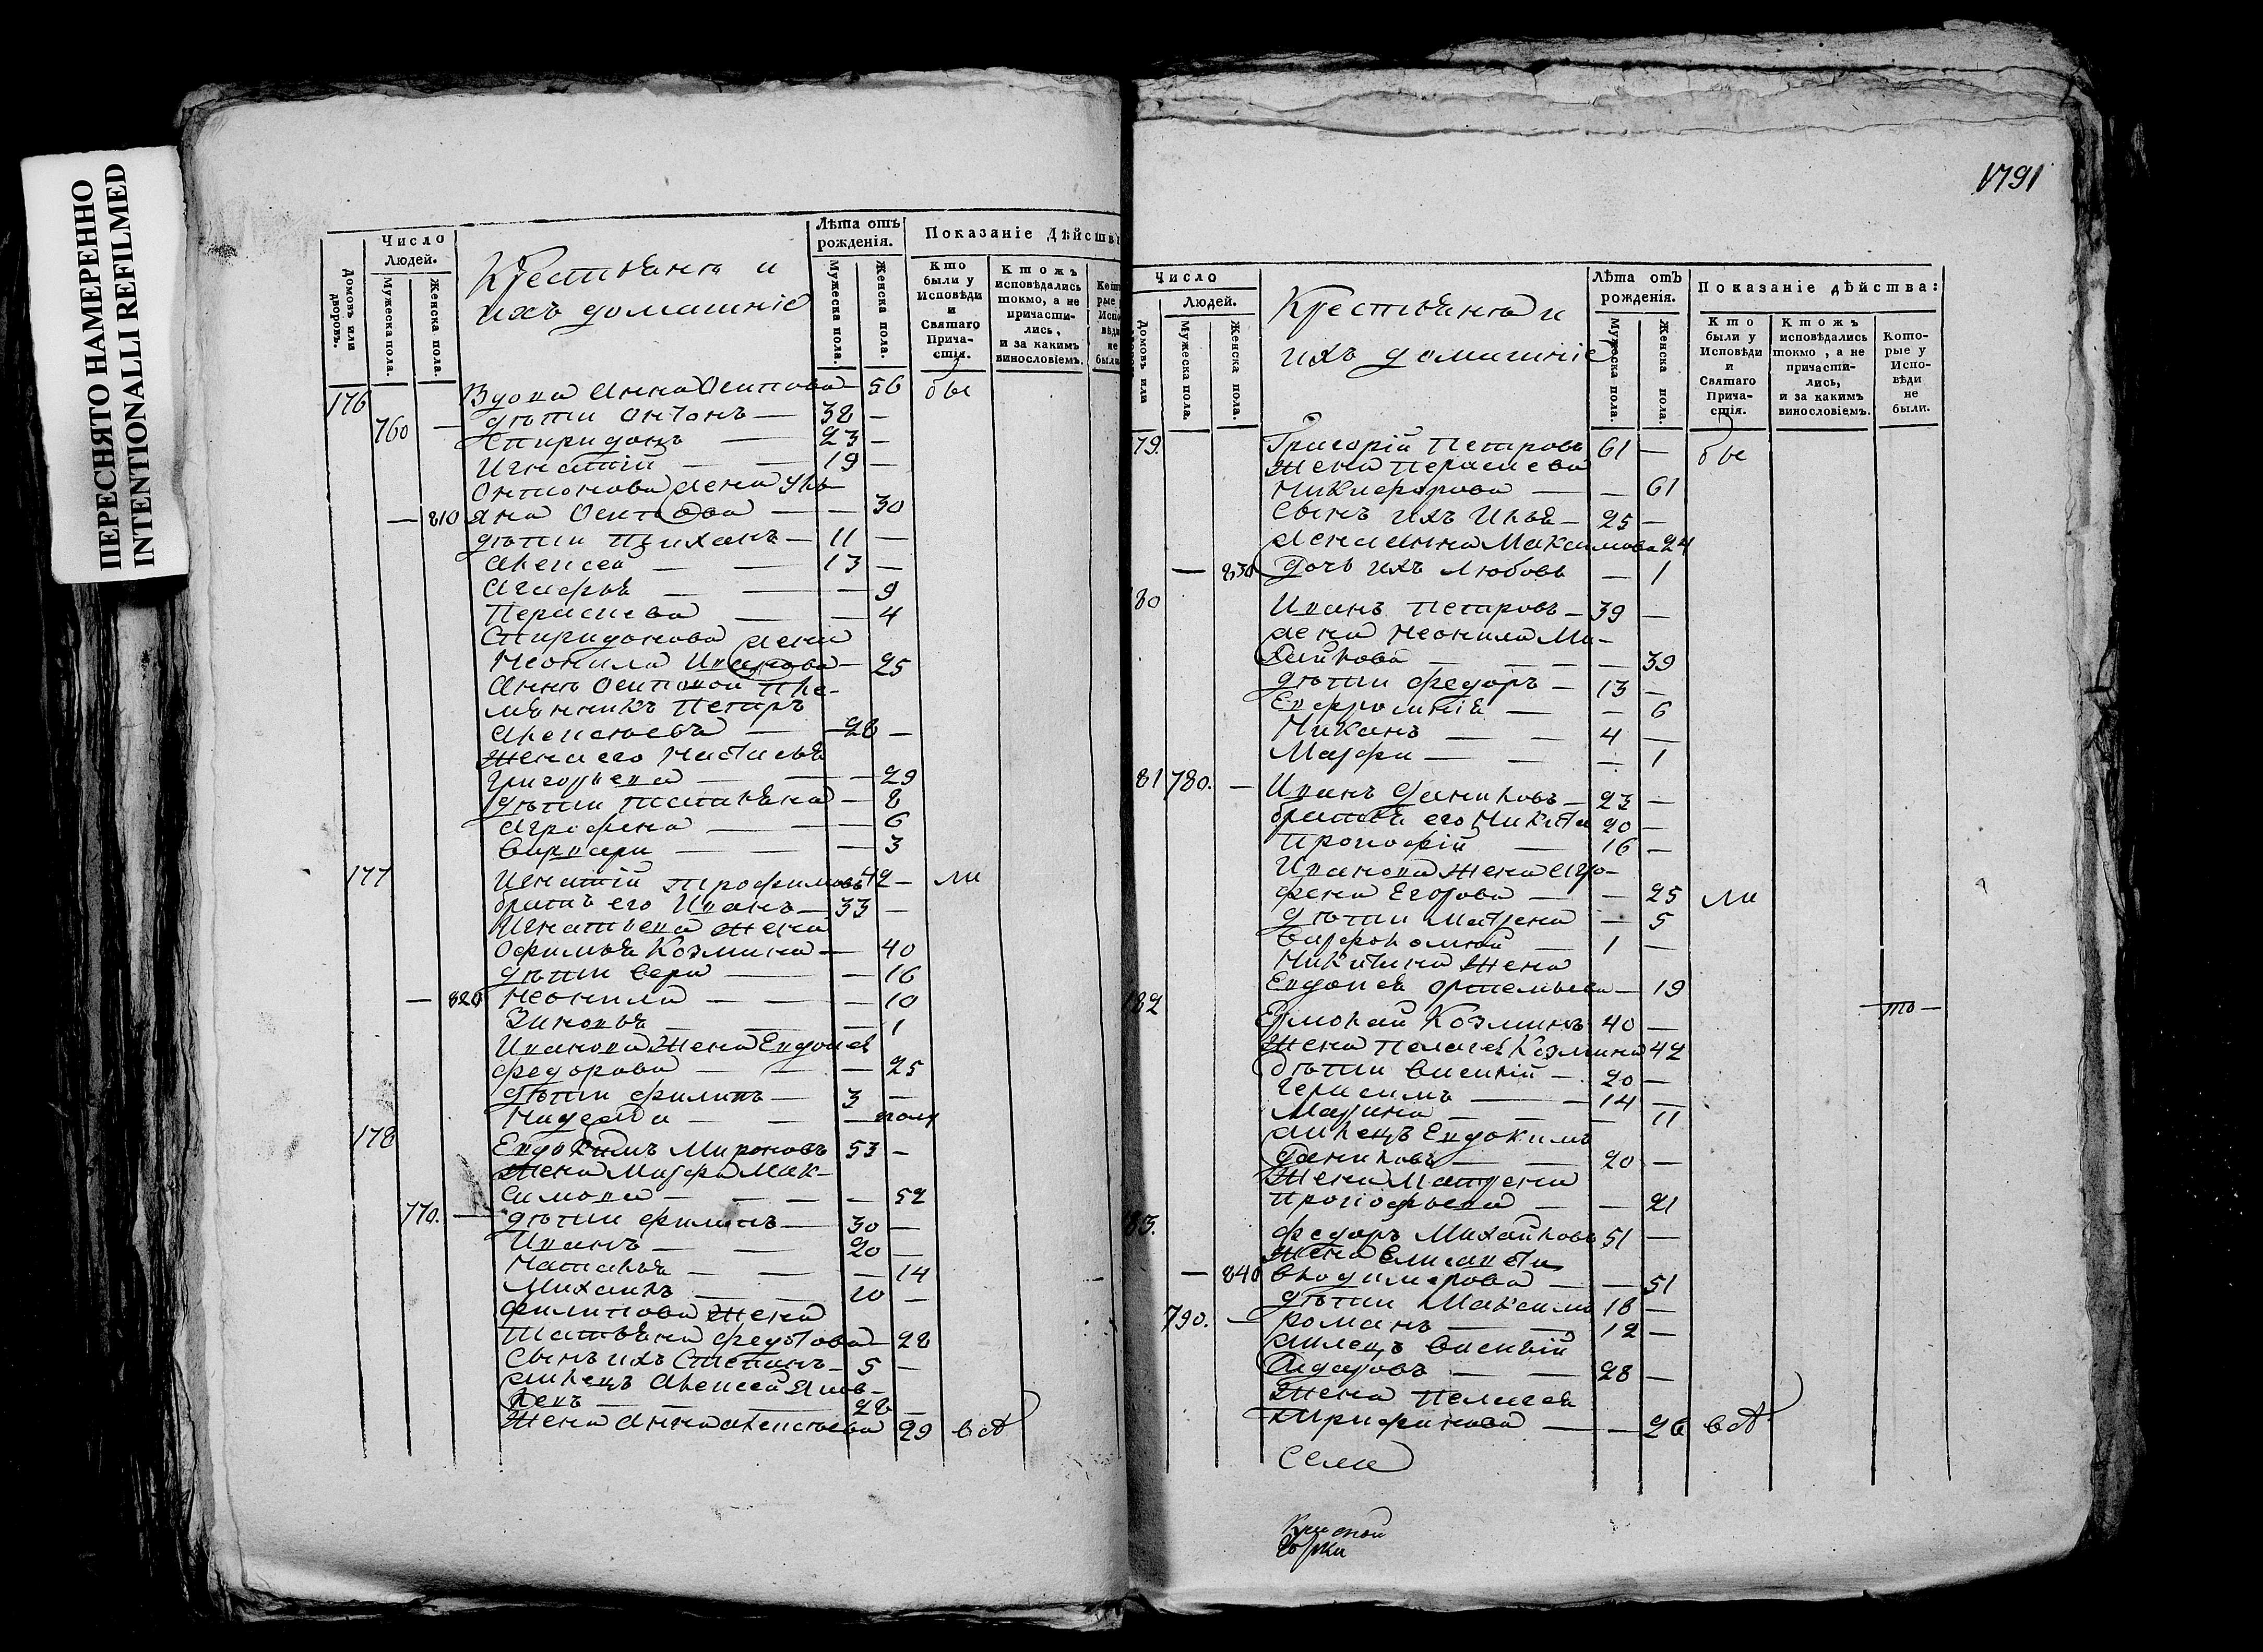 ПЕРЕСНЯТО НАМЕРЕННО
INTENTIONALLI REFILMED
Домовъ или дворовъ.
Число
Людей.
Мужеска пола.
Женска пола.
Крестьянъ и
ихъ домашніе
Лѣта отъ рожденія.
Мужеска пола.
Женска пола.
Показаніе Дѣйств
Кто были у Исповѣди и Святаго Причастія.
Ктожъ исповѣдались токмо, а не причастились, и за какимъ винословіемъ.
176 Вдова Анна Осипова — 56 бы
дѣти Антонъ — 38 —
760 — Спиридонъ — 23 —
Игнатій — — 19 —
Антонова жена Улья
— 810 яна Осипова — — 30
дѣти — 11 —
Алексей — — 13 —
Агафья — — — 9
Парасева — — 4
Спиридонова жена
Неонила Иванова — 25
Анны Осиповой пле-
мянникъ Петръ
Алексѣевъ — — 28 —
Жена его Настасья
Григорьева — — — 29
дѣти Татьяна — 8
Аграфена — — — 6
Варвара — — — 3
177 Игнатій Трофимовъ 42 — ли
братъ его Иванъ — 33 —
Игнатьева жена
Офимья Козмина — 40
дѣти Вера — — 16
— 820 Неонила — — — 10
Зиновья — — — 1
Иванова Жена Евдокія
Федорова — — — 25
дѣти Филипъ — 3 —
Надежда — — — полу
178 Евдокимъ Мироновъ 53 —
Жена Марфа Мак-
симова — — — — 52
770. — дѣти Филипъ — 30 —
Иванъ — — 20 —
Наталья — — — 14
Михаилъ — — 10 —
Филипова Жена
Татьяна Федотова — 28
Сынъ ихъ Степанъ — 5 —
Алексей Яков-
левъ — — — 28 —
Жена Анна Алексѣева 29 всѣ
1791
Число
Людей.
Домовъ или
Мужеска пола.
Женска пола.
Крестьянъ и
ихъ домашніе
Лѣта отъ рожденія.
Мужеска пола.
Женска пола.
Показаніе дѣйства:
Кто были у Исповѣди и Святаго Причастія.
Ктожъ исповѣдались токмо, а не причастились, и за какимъ винословіемъ.
Которые у Исповѣди не были.
79. Григорій Петровъ 61 — бы
Жена Парасева
Никифорова — — 61
Сынъ ихъ Илья — 25 —
Жена Анна Максимова 24
— 830 Дочь ихъ Любовь — 1
80 Иванъ Петровъ — 39 —
Жена Неонила Ми-
хайлова — — — — 39
дѣти Федоръ — 13 —
Евфросинія — — 6
Никонъ — — 4 —
Марфа — — — 1
81 780. — Иванъ Даниловъ — 23 —
братья его Никита 20 —
Прокофій — 16 —
Иванова Жена Агро-
фена Егорова — — 25 ли
дѣти Матрена — 5
Варфоломей — 1 —
Никитина Жена
Евдокія Артемьева — 19
182 Ермолай Козминъ 40 — то —
Жена Пелагея Козмина 42
дѣти Василій — 20 —
Герасимъ — — 14 —
Марина — — — 11
Евдокимъ
Даниловъ — — 20 —
Жена Матрена
Прокофьева — — 21
83. Федоръ Михайловъ 51 —
Жена Елисавета
— 840 Владимерова — — 51
дѣти Максимъ 18 —
790. — Романъ — — 12 —
Василій
— — 28 —
Жена Пелагея
Трифонова — — 26 всѣ
Села
Красной
Горки